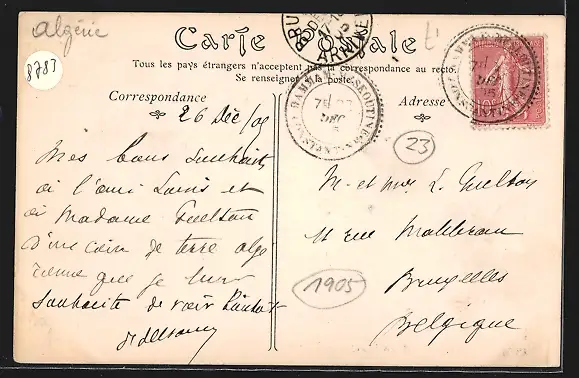 algérie
8783
Carte Postale
Tous les pays étrangers n'acceptent pas la correspondance au recto.
Se renseigner à la poste.
BRUXELLES
ARRIVÉE
HAMMAM-MESKOUTINE
CONSTANTINE
DEC
Correspondance
Adresse
26 Déc/05
23
Mes bons souhaits
à l'ami Louis et
à Madame
D'un coin de terre algé
rienne que je leur
souhaite de voir
M. et Mme L.
11 rue Malibran
Bruxelles
Belgique
1905